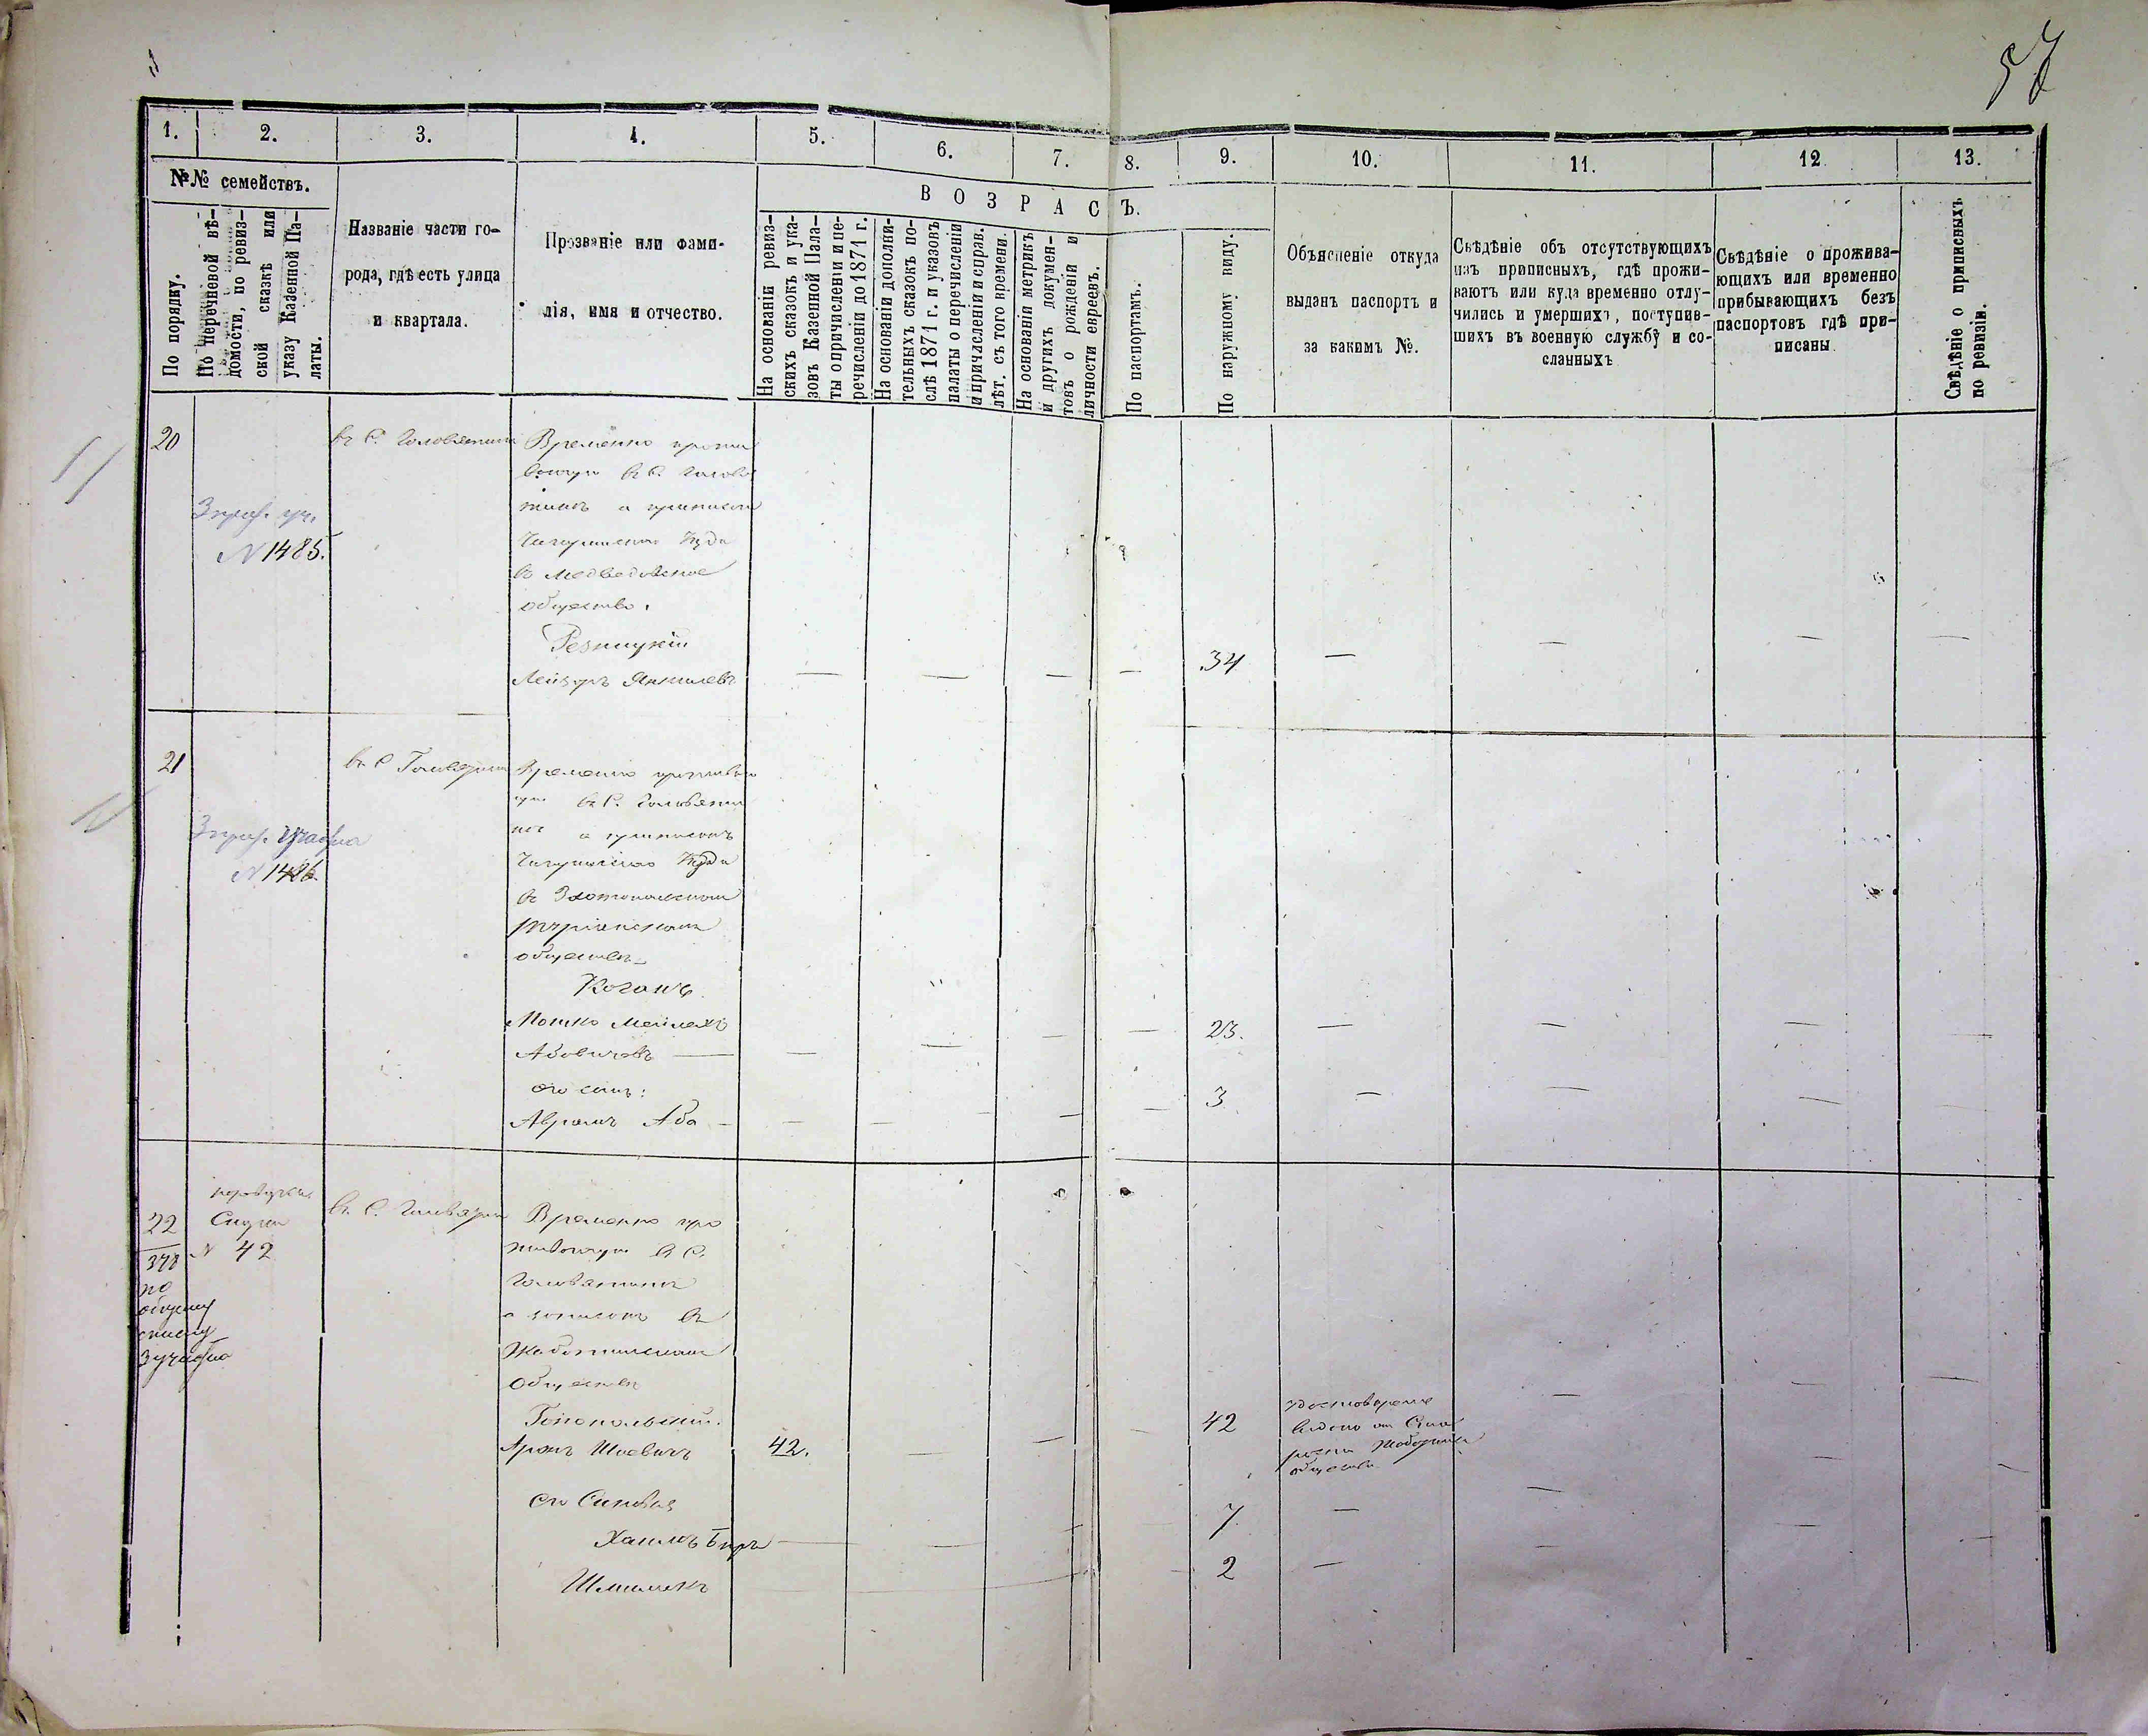 57
1.
2.
3.
4.
5.
6.
7.
8.
9.
10.
11.
12
13.
№№ семействъ.
По порядку.
По перечневой вѣ-
домости, по ревиз-
ской сказкѣ или
указу Казенной Па-
латы.
Названіе части го-
рода, гдѣ есть улица
и квартала.
Прозваніе или фами-
лія, имя и отчество.
ВОЗРАСЪ.
На основаніи ревиз-
скихъ сказокъ и ука-
зовъ Казенной Пала-
ты о причисленіи и пе-
речисленіи до 1871 г.
На основаніи дополни-
тельныхъ сказокъ по-
слѣ 1871 г. и указовъ
палаты о перечисленіи
и причисленіи и справ.
лѣт. съ того времени.
На основаніи метрикъ
и другихъ докумен-
товъ о рожденіи и
личности евреевъ.
По паспортамъ.
По наружному виду.
Объясненіе откуда
выданъ паспортъ и
за какимъ №.
Свѣдѣніе объ отсутствующихъ
изъ приписныхъ, гдѣ прожи-
ваютъ или куда временно отлу-
чились и умершихъ, поступив-
шихъ въ военную службу и со-
сланныхъ
Свѣдѣніе о прожива-
ющихъ или временно
прибывающихъ безъ
паспортовъ гдѣ при-
писаны
Свѣдѣніе о приписныхъ
по ревизіи.
20
3 уч.
N 1485.
въ С. Головятинѣ
Временно прожи
вающи въ С. Головя
тинѣ а приписан
Чигиринскаго Уѣзда
въ Медведовское
общество.
Резницкій
Лейзоръ Янкилевъ
34
21
3 участка
N 1486.
въ С Головятинѣ
Временно проживаю
щи въ С. Головяти
нѣ а приписанъ
Чигиринскаго Уѣзда
въ Златопольскомъ
мѣщанскомъ
обществѣ
Коганъ
Мошко Мейлехъ
Абовичъ
23.
его сынъ:
Аврамъ Аба
3
22
378
по
общему
списку
3 участка
N 42
въ С. Головятинѣ
Временно про
живающи въ С.
Головятинѣ
а записанъ въ
Жаботинскомъ
Обществѣ
Тонопольскій.
Аронъ Шоевичъ
42.
42
удостоверение
видено от Ста
росты Жаботинск
общества
его Сыновья
Хаимъ Беръ
7
Шмиликъ
2